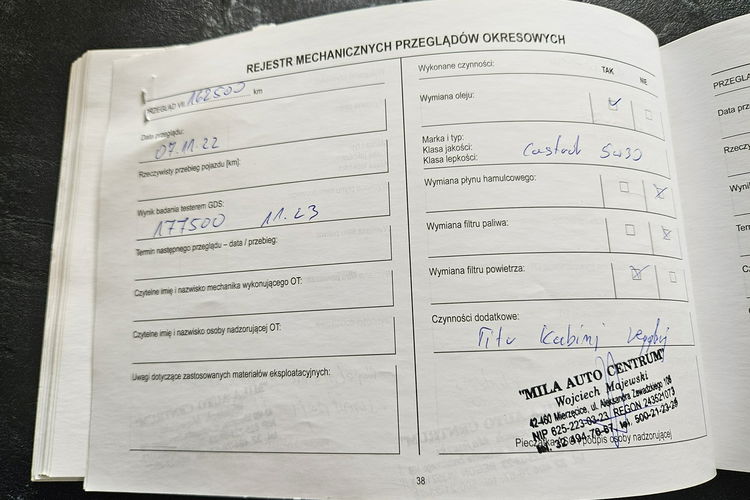 REJESTR MECHANICZNYCH PRZEGLĄDÓW OKRESOWYCH
PRZEGLĄD VII 162500 km
Data przeglądu:
07.11.22
Rzeczywisty przebieg pojazdu [km]:
Wynik badania testerem GDS:
177500 11.23
Termin następnego przeglądu – data / przebieg:
Czytelne imię i nazwisko mechanika wykonującego OT:
Czytelne imię i nazwisko osoby nadzorującej OT:
Uwagi dotyczące zastosowanych materiałów eksploatacyjnych:
Wykonane czynności:
TAK NIE
Wymiana oleju:
Marka i typ:
Klasa jakości:
Klasa lepkości:
5W30
Wymiana płynu hamulcowego:
Wymiana filtru paliwa:
Wymiana filtru powietrza:
Czynności dodatkowe:
Filtr Kabiny
"MILA AUTO CENTRUM"
Wojciech Majewski
42-460 Mierzęcice, ul. Aleksandra Zawadzkiego
NIP 625-223-83-23, REGON 243521073
tel. 500-21-23-29
podpis osoby nadzorującej
38
PRZEGLĄ
Data prz
Rzeczy
Wynik
Term